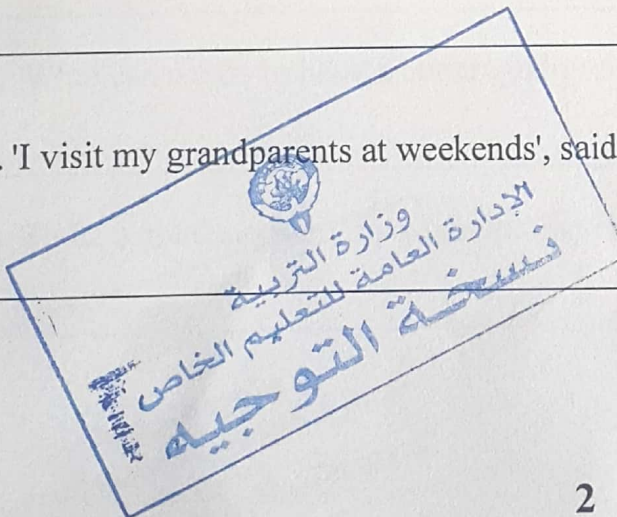 . 'I visit my grandparents at weekends', said
وزارة التربية
الإدارة العامة للتعليم الخاص
نسخة التوجيه
2